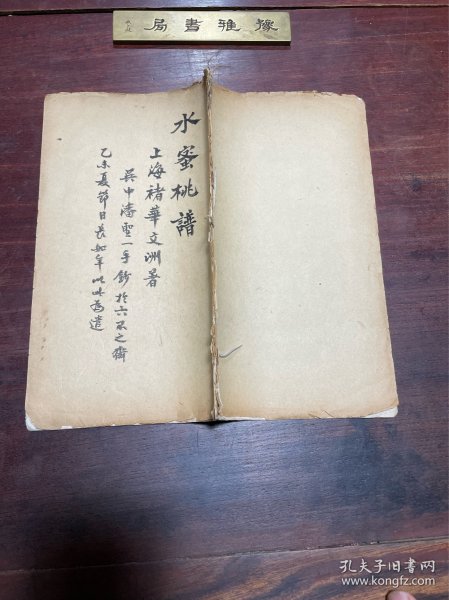 豫雅書局
水蜜桃譜
上海褚華文洲著
吳中潘聖一手鈔於六不之齋
乙未夏節日長如年以此為遣
孔夫子旧书网
www.kongfz.com